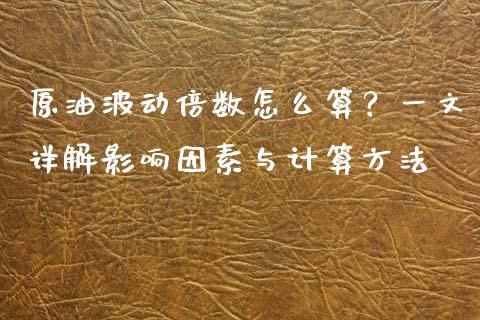 原油波动倍数怎么算？一文
详解影响因素与计算方法